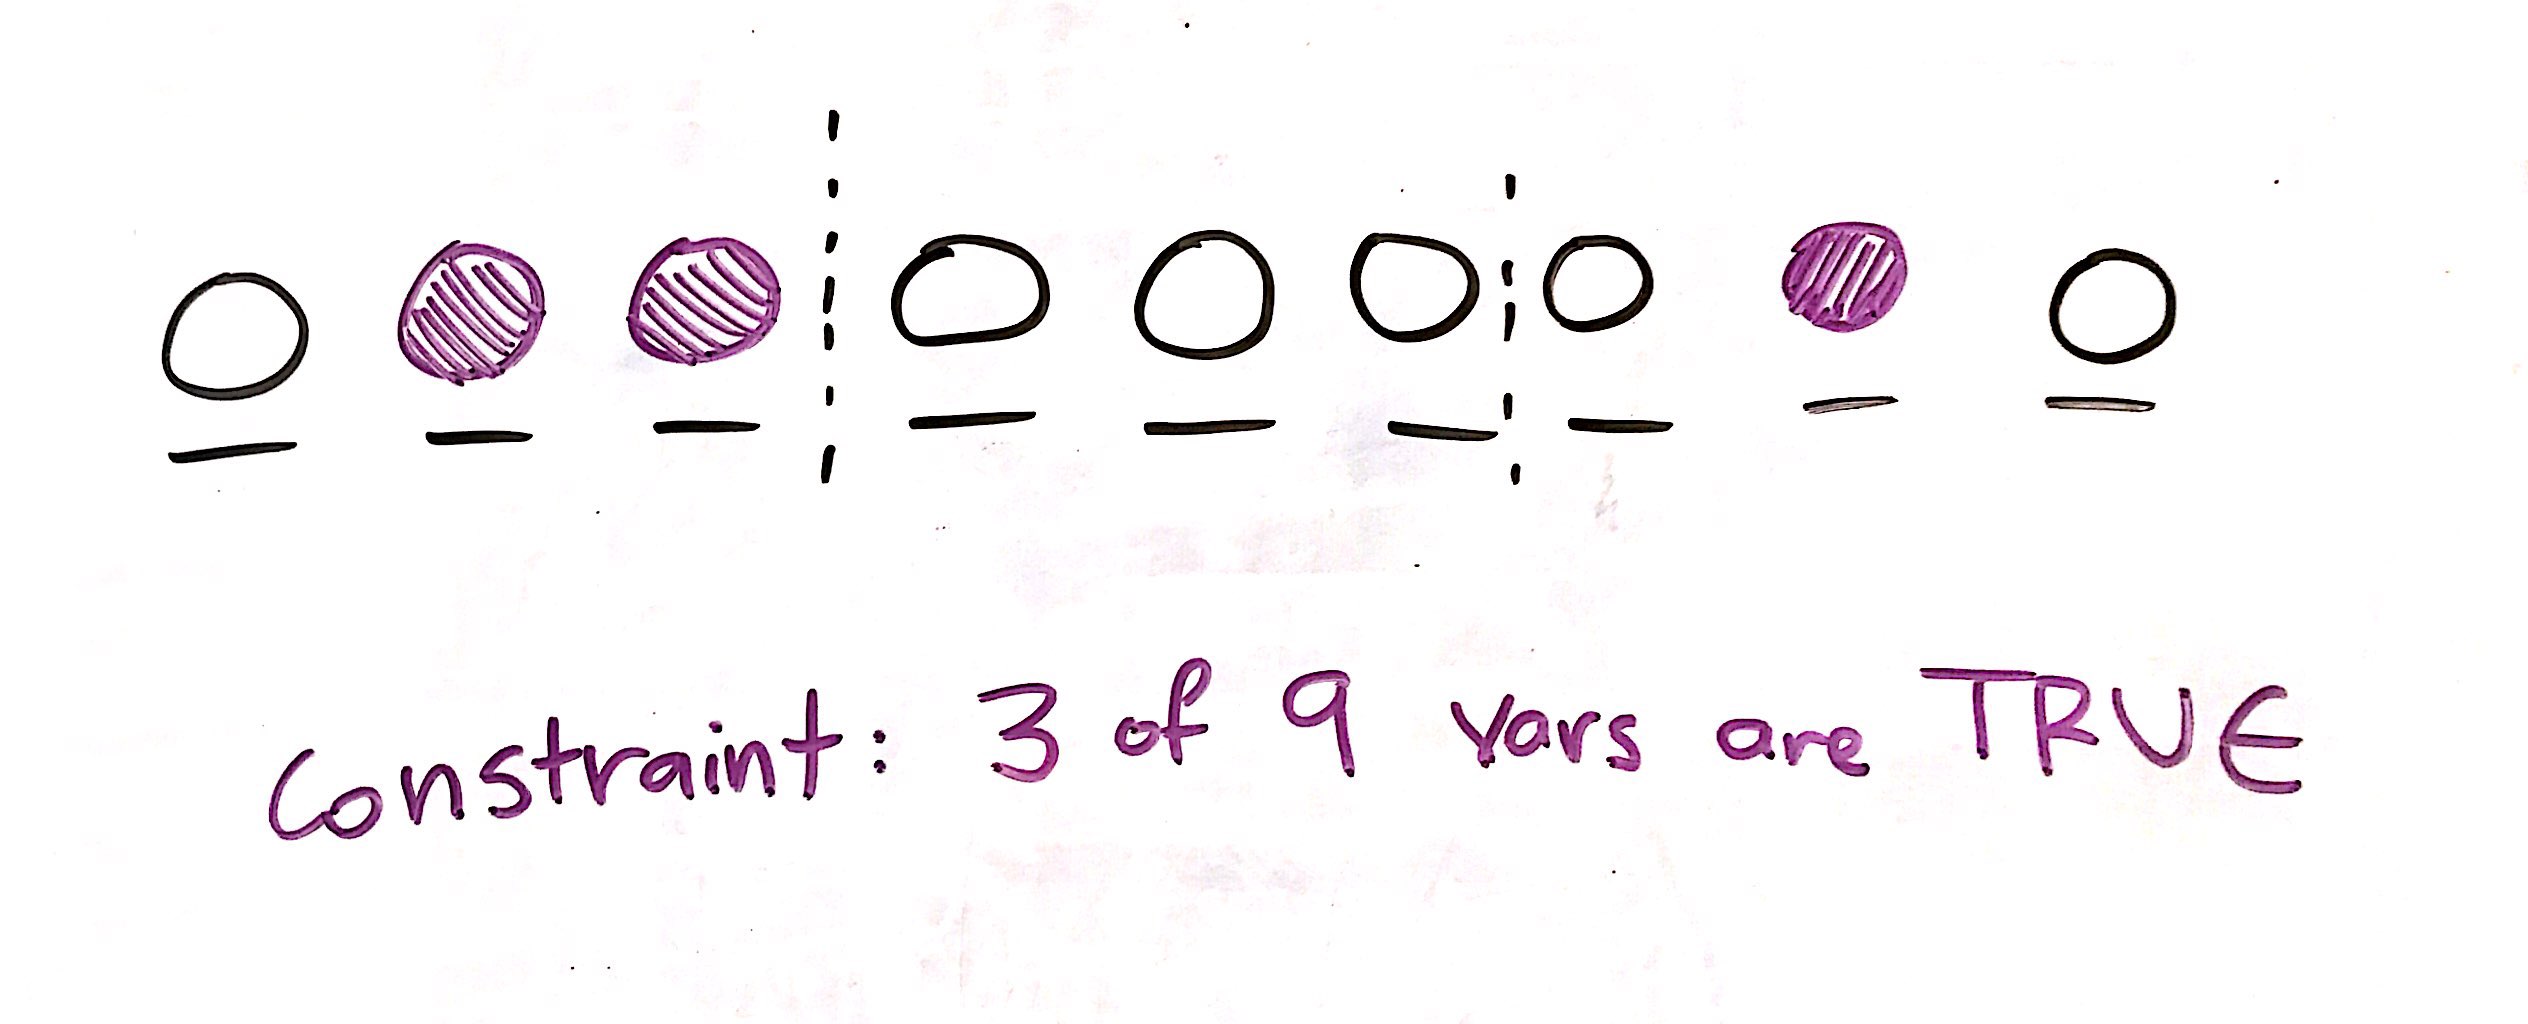 Constraint: 3 of 9 vars are TRUE